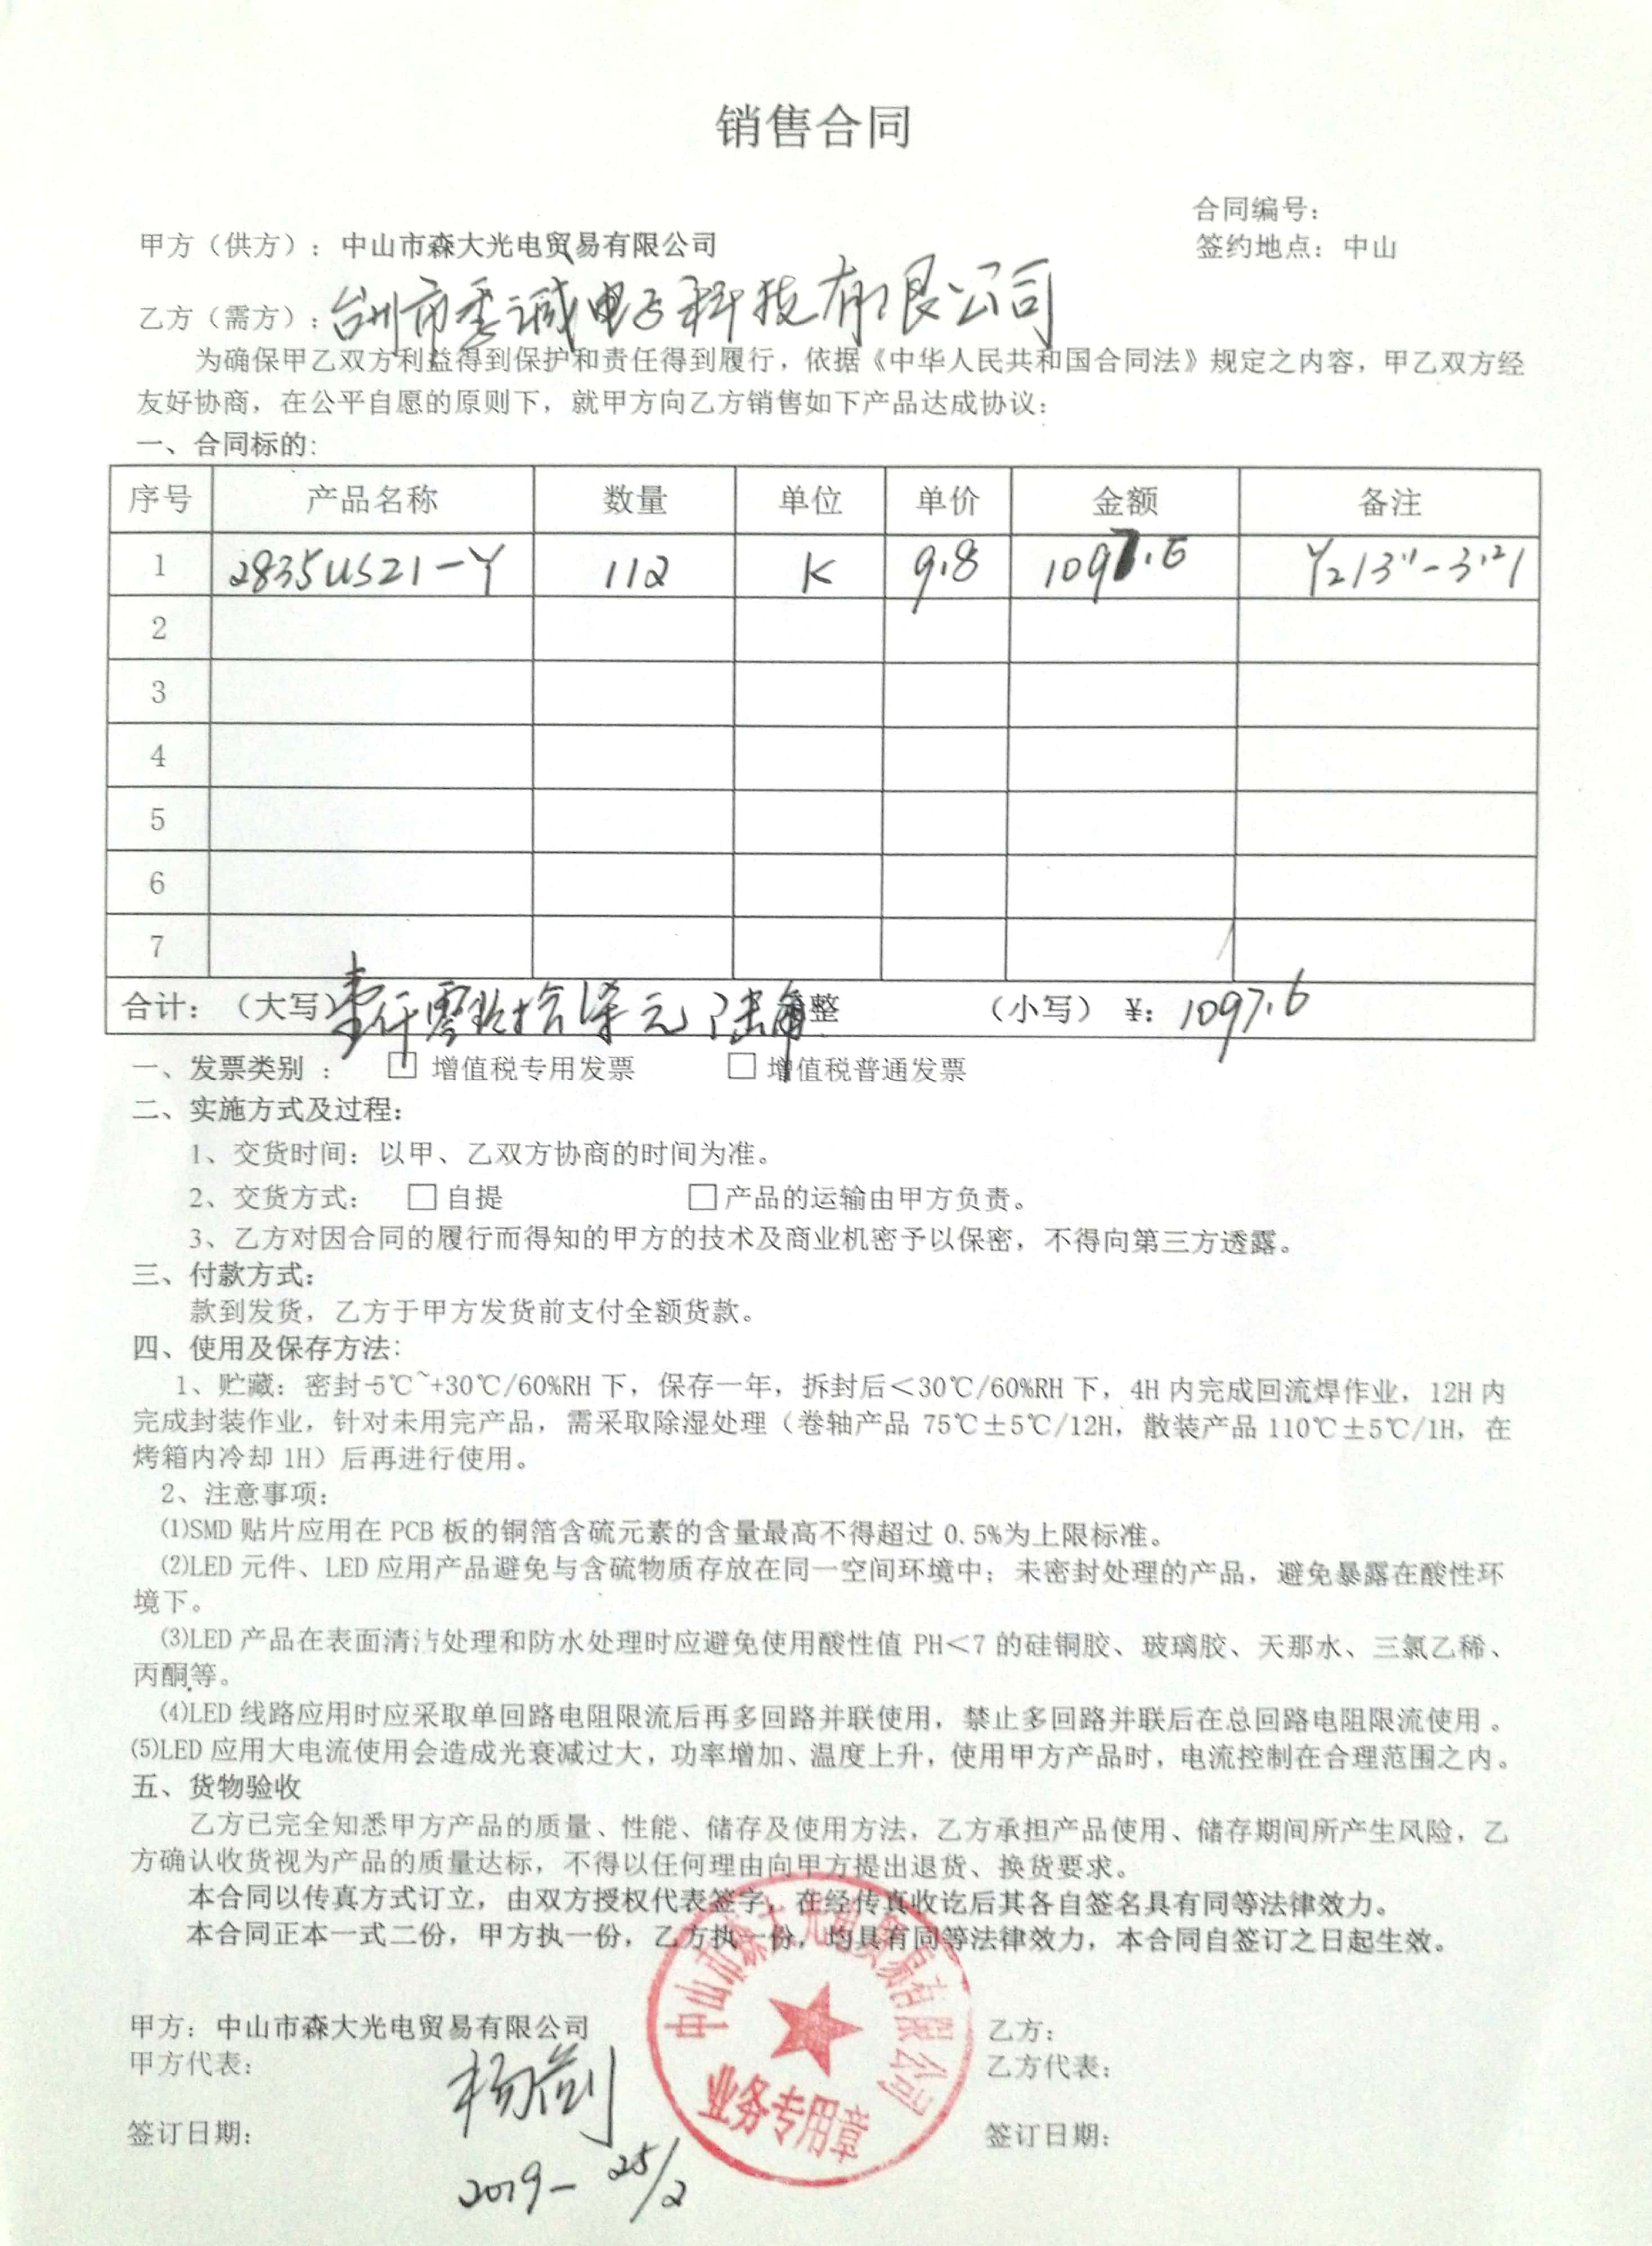 销售合同
合同编号：
甲方（供方）：中山市森大光电贸易有限公司
签约地点：中山
乙方（需方）：台州市秀诚电子科技有限公司
为确保甲乙双方利益得到保护和责任得到履行，依据《中华人民共和国合同法》规定之内容，甲乙双方经
友好协商，在公平自愿的原则下，就甲方向乙方销售如下产品达成协议：
一、合同标的：
序号 产品名称 数量 单位 单价 金额 备注
1 2835US21-Y 112 K 9.8 1097.6
2
3
4
5
6
7
合计：（大写）壹仟零玖拾柒元陆角整 （小写）¥：1097.6
一、发票类别 ： □ 增值税专用发票 □ 增值税普通发票
二、实施方式及过程：
1、交货时间：以甲、乙双方协商的时间为准。
2、交货方式： □ 自提 □产品的运输由甲方负责。
3、乙方对因合同的履行而得知的甲方的技术及商业机密予以保密，不得向第三方透露。
三、付款方式：
款到发货，乙方于甲方发货前支付全额货款。
四、使用及保存方法：
1、贮藏：密封-5℃~+30℃/60%RH 下，保存一年，拆封后＜30℃/60%RH 下，4H 内完成回流焊作业，12H 内
完成封装作业，针对未用完产品，需采取除湿处理（卷轴产品 75℃±5℃/12H，散装产品 110℃±5℃/1H，在
烤箱内冷却 1H）后再进行使用。
2、注意事项：
⑴SMD 贴片应用在 PCB 板的铜箔含硫元素的含量最高不得超过 0.5%为上限标准。
⑵LED 元件、LED 应用产品避免与含硫物质存放在同一空间环境中；未密封处理的产品，避免暴露在酸性环
境下。
⑶LED 产品在表面清洁处理和防水处理时应避免使用酸性值 PH＜7 的硅铜胶、玻璃胶、天那水、三氯乙稀、
丙酮等。
⑷LED 线路应用时应采取单回路电阻限流后再多回路并联使用，禁止多回路并联后在总回路电阻限流使用。
⑸LED 应用大电流使用会造成光衰减过大，功率增加、温度上升，使用甲方产品时，电流控制在合理范围之内。
五、货物验收
乙方已完全知悉甲方产品的质量、性能、储存及使用方法，乙方承担产品使用、储存期间所产生风险，乙
方确认收货视为产品的质量达标，不得以任何理由向甲方提出退货、换货要求。
本合同以传真方式订立，由双方授权代表签字，在经传真收讫后其各自签名具有同等法律效力。
本合同正本一式二份，甲方执一份，乙方执一份，均具有同等法律效力，本合同自签订之日起生效。
中山市森大光电贸易有限公司
业务专用章
甲方：中山市森大光电贸易有限公司 乙方：
甲方代表： 乙方代表：
签订日期： 签订日期：
2019-25/2